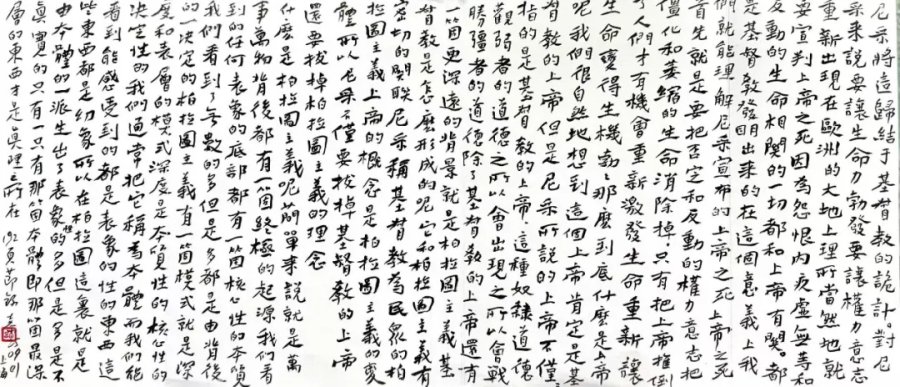 尼采將這歸結于基督教的詭計。對尼
采來說要讓生命力勃發要讓權力意志
重新出現在歐洲的大地上理所當然地就
要宣判上帝之死因為怨恨内疚虛無等和
反動的生命相關的一切都和上帝有關。都
是基督教發明出來的在這個意義上我
們就能理解尼采宣布的上帝之死上帝之死
首先就是要把否定和反動的權力意志把
僵化和萎縮的生命消除掉，只有把上帝推倒
了人們才有機會重新激發生命重新讓
生命變得生機勃勃那麼到底什麼是上帝
呢我們很自然地想到這個上帝肯定是基
督教的上帝但是尼采所說的上帝不僅
指的是基督教的上帝這種奴隸道德
觀弱者的道德之所以會出現之所以會戰
勝強者的道德除了基督教的上帝以還有
一個更深遠的背景就是柏拉圖主義基
督教是怎麼形成的呢它和柏拉圖主義有
密切的關聯尼采稱基督教為民眾的柏
拉圖主義上帝的概念是柏拉圖主義的變
體所以尼采不僅要拔掉基督教的上帝
還要拔掉柏拉圖主義的理念
什麼是柏拉圖主義呢簡單來說就是萬
事萬物背後都有一個終極的起源我們看
到的任何表象的底部都有一個核心性的本質
我們看到了無數的多但是多都是由背後
的一決定的柏拉圖主義有一個模式就是深
度和表層的模式深度是本質性的核心性的
決定性的我們通常把它稱為本體而我們能
看到能感受到的都是表象的性的東西這
些東西都是幻象所以在柏拉圖這裏就是
由本體的一派生出了表象性的多但是多是不
真實的只有一只有那個本體即那個最深
層的東西才是真理之所在 192頁 節錄